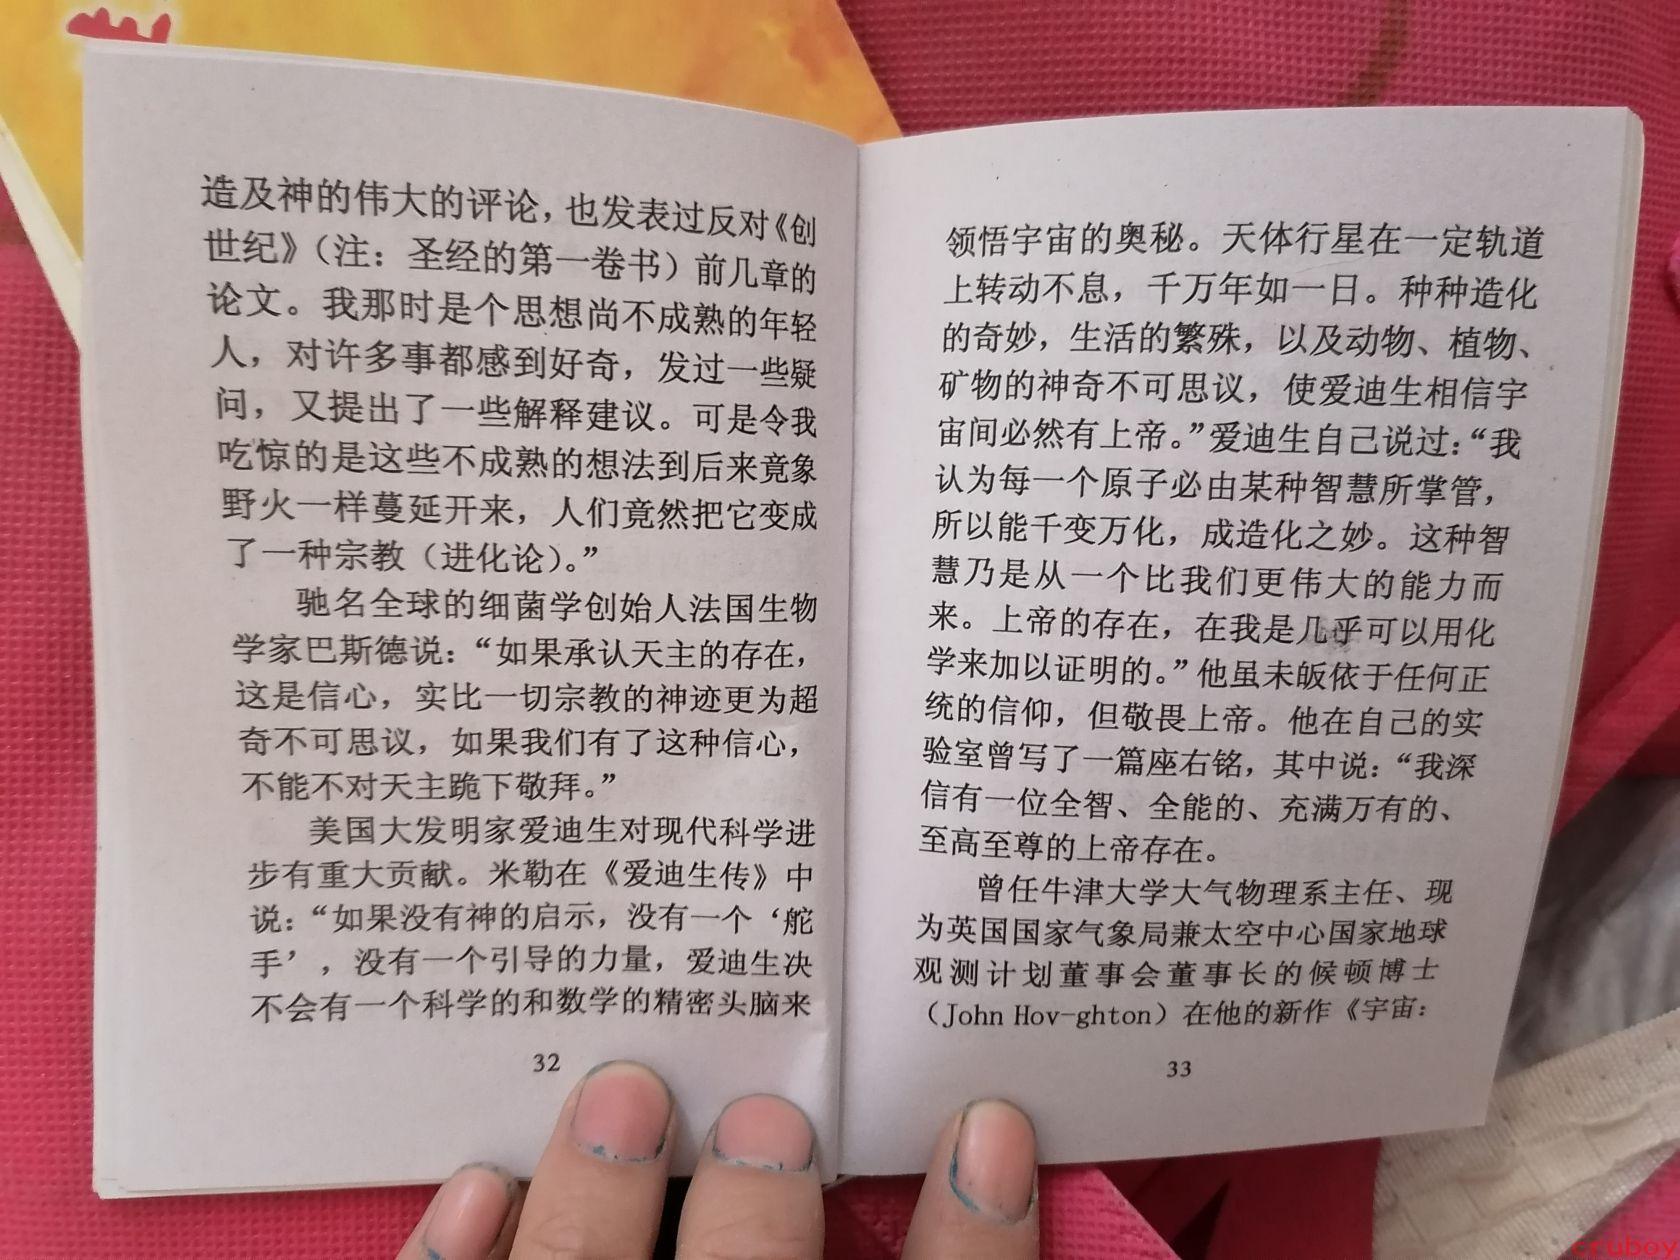 造及神的伟大的评论，也发表过反对《创
世纪》（注：圣经的第一卷书）前几章的
论文。我那时是个思想尚不成熟的年轻
人，对许多事都感到好奇，发过一些疑
问，又提出了一些解释建议。可是令我
吃惊的是这些不成熟的想法到后来竟象
野火一样蔓延开来，人们竟然把它变成
了一种宗教（进化论）。”
驰名全球的细菌学创始人法国生物
学家巴斯德说：“如果承认天主的存在，
这是信心，实比一切宗教的神迹更为超
奇不可思议，如果我们有了这种信心，
不能不对天主跪下敬拜。”
美国大发明家爱迪生对现代科学进
步有重大贡献。米勒在《爱迪生传》中
说：“如果没有神的启示，没有一个‘舵
手’，没有一个引导的力量，爱迪生决
不会有一个科学的和数学的精密头脑来
32
领悟宇宙的奥秘。天体行星在一定轨道
上转动不息，千万年如一日。种种造化
的奇妙，生活的繁殊，以及动物、植物、
矿物的神奇不可思议，使爱迪生相信宇
宙间必然有上帝。”爱迪生自己说过：“我
认为每一个原子必由某种智慧所掌管，
所以能千变万化，成造化之妙。这种智
慧乃是从一个比我们更伟大的能力而
来。上帝的存在，在我是几乎可以用化
学来加以证明的。”他虽未皈依于任何正
统的信仰，但敬畏上帝。他在自己的实
验室曾写了一篇座右铭，其中说：“我深
信有一位全智、全能的、充满万有的、
至高至尊的上帝存在。
曾任牛津大学大气物理系主任、现
为英国国家气象局兼太空中心国家地球
观测计划董事会董事长的候顿博士
（John Hov-ghton）在他的新作《宇宙：
33
cruboy